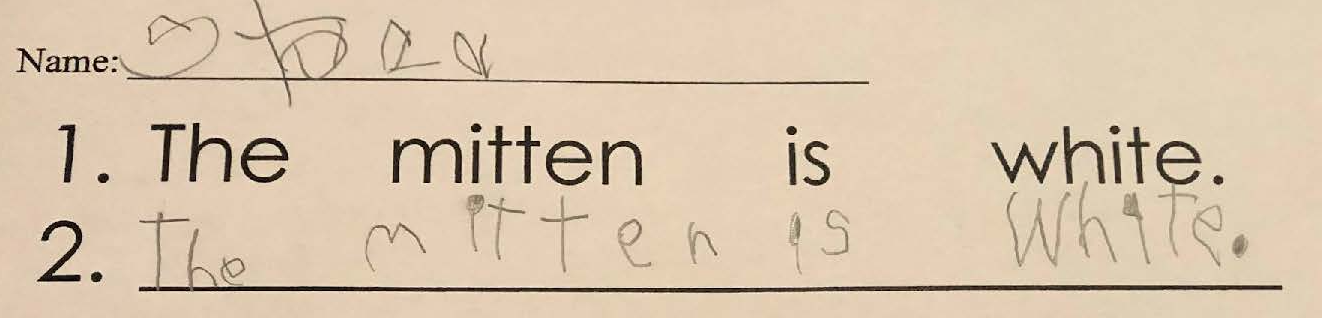 Name:
1. The mitten is white.
2. The mitten is White.